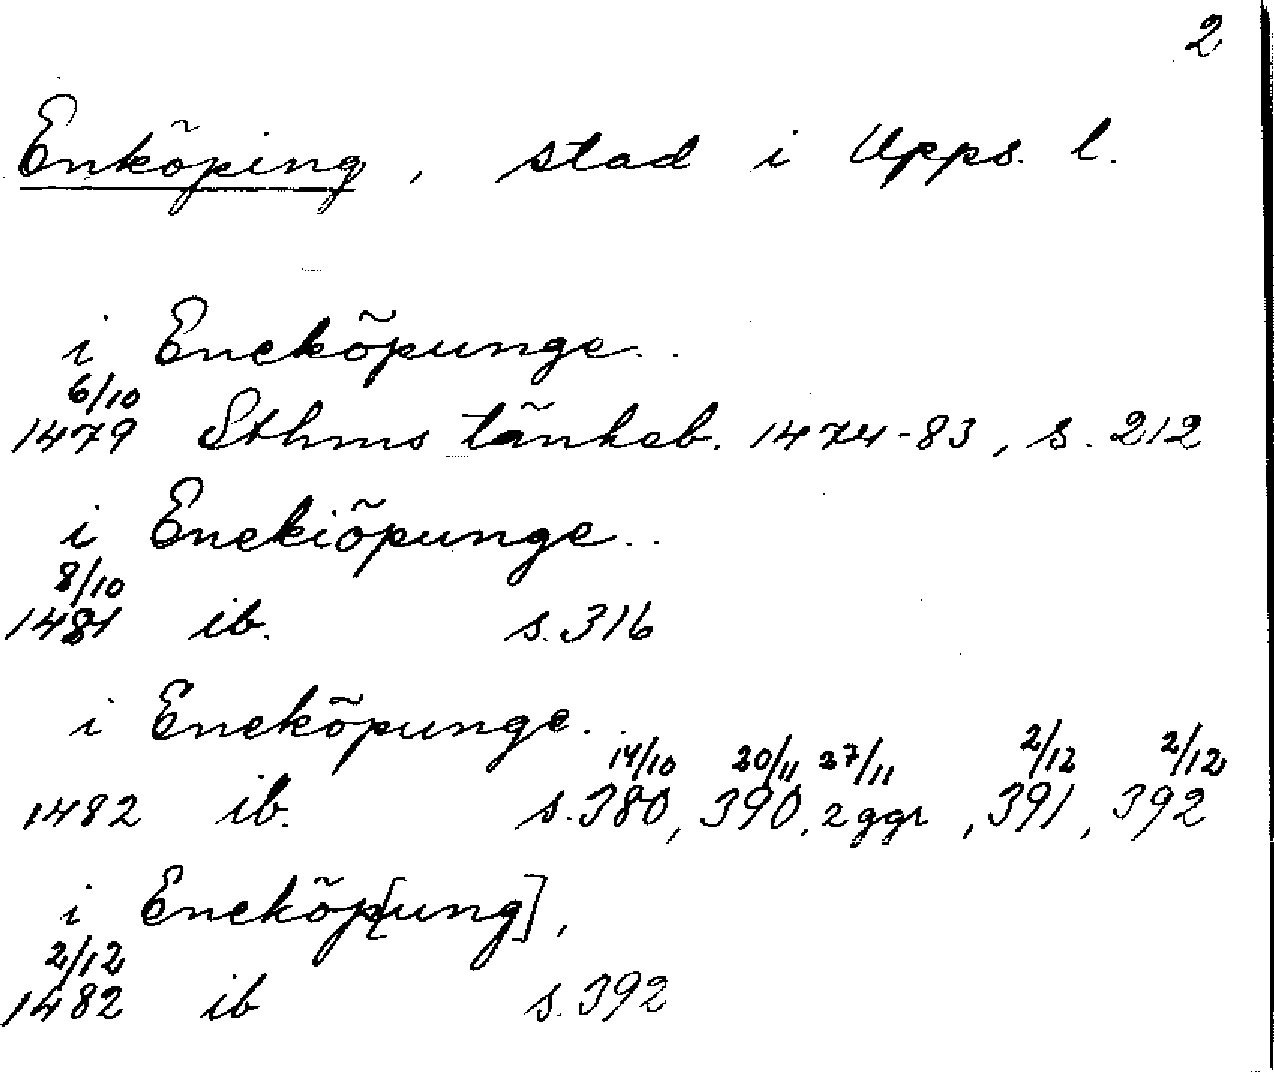 2
Enköping, stad i Upps. l.
i Eneköpunge..
6/10
1479 Sthms tänkeb. 1474-83, s. 212
i Enekiöpunge..
8/10
1481 ib. s. 316
i Eneköpunge..
14/10 20/11 27/11 2/12 2/12
1482 ib. s. 380, 390, 2 ggr, 391, 392
i Eneköp[ung],
2/12
1482 ib s. 392